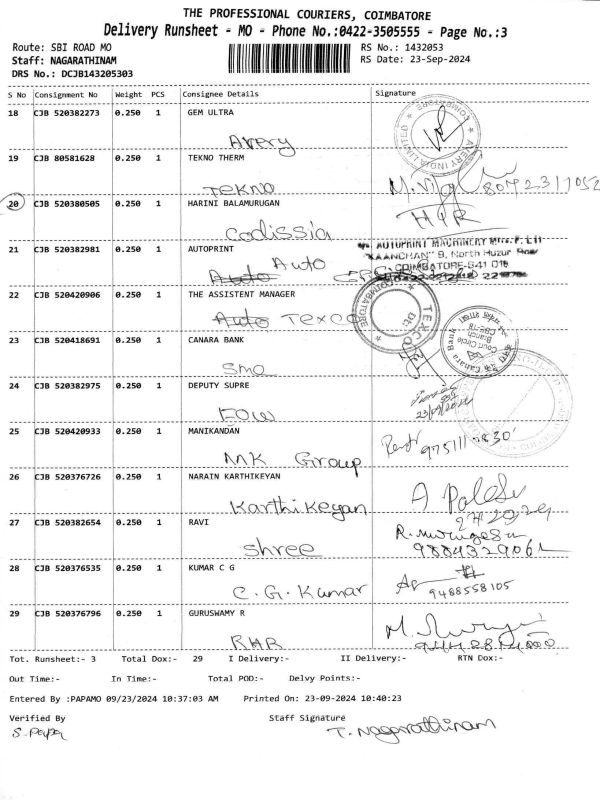 THE PROFESSIONAL COURIERS, COIMBATORE
Delivery Runsheet - MO - Phone No.:0422-3505555 - Page No.:3
Route: SBI ROAD MO
RS No.: 1432053
Staff: NAGARATHINAM
RS Date: 23-Sep-2024
DRS No.: DCJB143205303
S No Consignment No Weight PCS Consignee Details Signature
18 CJB 520382273 0.250 1 GEM ULTRA
Avery
COIMBATORE AVERY INDIA LIMITED
19 CJB 80581628 0.250 1 TEKNO THERM
Tekno
20 CJB 520380505 0.250 1 HARINI BALAMURUGAN
Codissia
21 CJB 520382981 0.250 1 AUTOPRINT
Auto Auto
AUTOPRINT MACHINERY
"KAANCHAN" 9, North Huzur Road
COIMBATORE-641 018
22 CJB 520420906 0.250 1 THE ASSISTENT MANAGER
Auto Texco
TEXCO COIMBATORE
23 CJB 520418691 0.250 1 CANARA BANK
Smo
Canara Bank
Court Circle
Branch
CBE-18
24 CJB 520382975 0.250 1 DEPUTY SUPRE
EOW
25 CJB 520420933 0.250 1 MANIKANDAN
MK Group
26 CJB 520376726 0.250 1 NARAIN KARTHIKEYAN
Karthikeyan
27 CJB 520382654 0.250 1 RAVI
Shree
R. Murugesan
28 CJB 520376535 0.250 1 KUMAR C G
C.G. Kumar
9488558105
29 CJB 520376796 0.250 1 GURUSWAMY R
RHR
Tot. Runsheet:- 3 Total Dox:- 29 I Delivery:- II Delivery:- RTN Dox:-
Out Time:- In Time:- Total POD:- Delvy Points:-
Entered By :PAPAMO 09/23/2024 10:37:03 AM Printed On: 23-09-2024 10:40:23
Verified By Staff Signature
S. Papa T. Nagarathinam